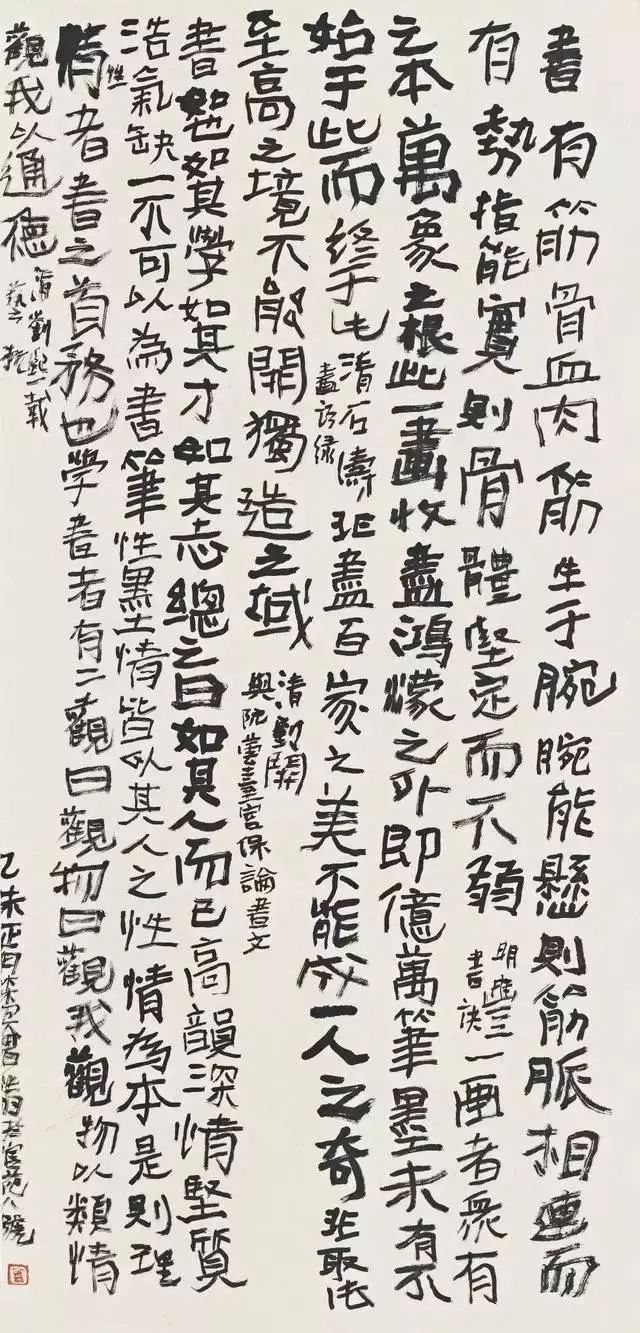 書有筋骨血肉筋生于腕腕能懸則筋脈相連而
有勢指能實則骨體堅定而不弱 明豐 書訣 一画者眾有
之本萬象之根此一畫收盡鴻濛之外即億萬筆墨未有不
始于此而終于此 清石濤 畫語録 非盡百家之美不能成一人之奇非取法
至高之境不能開獨造之域 清劉開 與阮芸臺宮保論書文
書如也如其學如其才如其志總之曰如其人而已高韻深情堅質
浩氣缺一不可以為書筆性墨情皆以其人之性情為本是則理
性情者書之首務也學書者有二觀曰觀物曰觀我觀物以類情
觀我以通德 清劉熙載 藝概
乙未正月